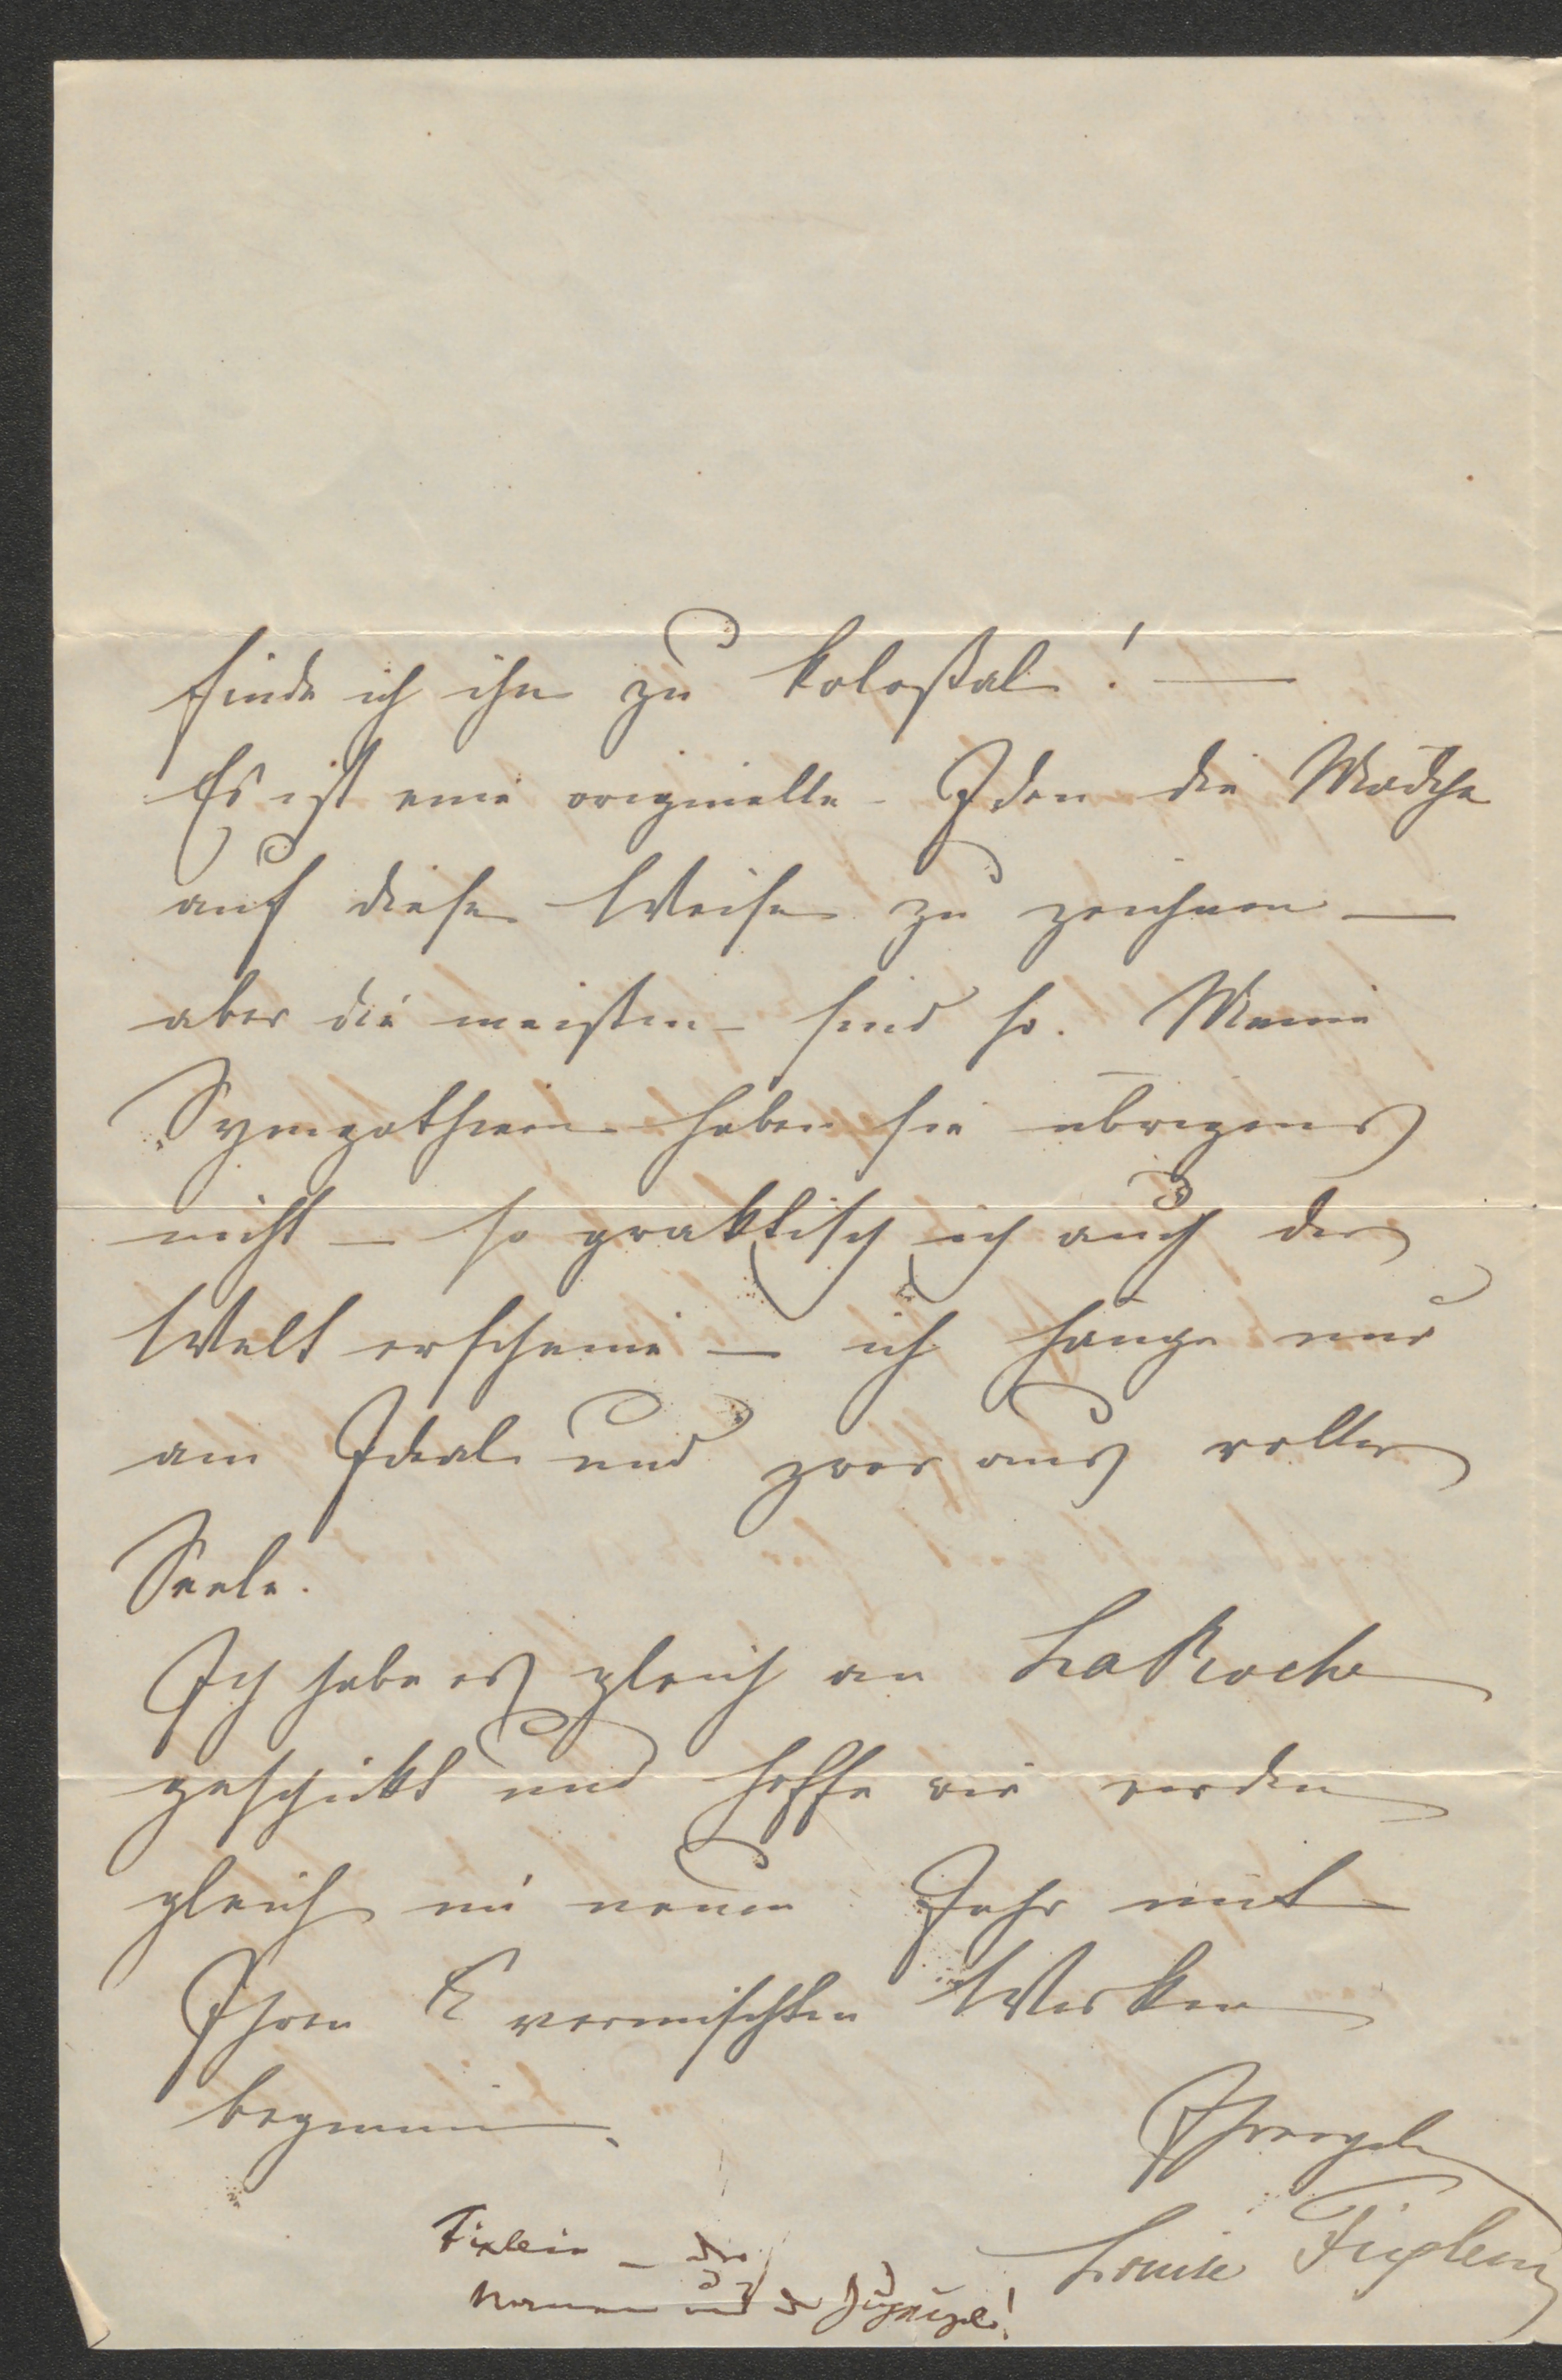 finde ich ihn zu koloßal! —
Es ist eine originelle Idee die Mädche
auf diese Weise zu zeichnen —
aber die meisten sind so. Meine
Sympathien haben sie übrigens
nicht — so praktisch ich auch der
Welt erscheine — ich hänge nur
am Ideal und zwar aus voller
Seele.
Ich habe es gleich an LaRoche
geschickt und hoffe wir werden
gleich im neuen Jahr mit
Ihren vermischten Werken
beginnen.
Louise
Fixlein —
und